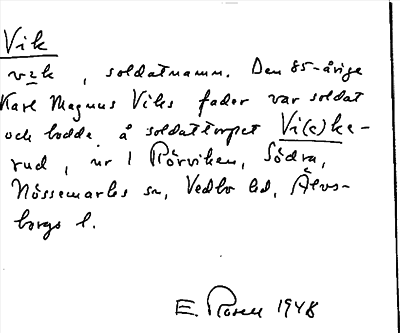 Vik
vzk, soldatnamn. Den 85-årige
Karl Magnus Viks fader var soldat
och bodde å soldattorpet Vi(c)ke-
rud, nr 1 Rörviken, Södra,
Nössemarks sn, Vedbo hd, Älvs-
borgs l.
E. Rosell 1948